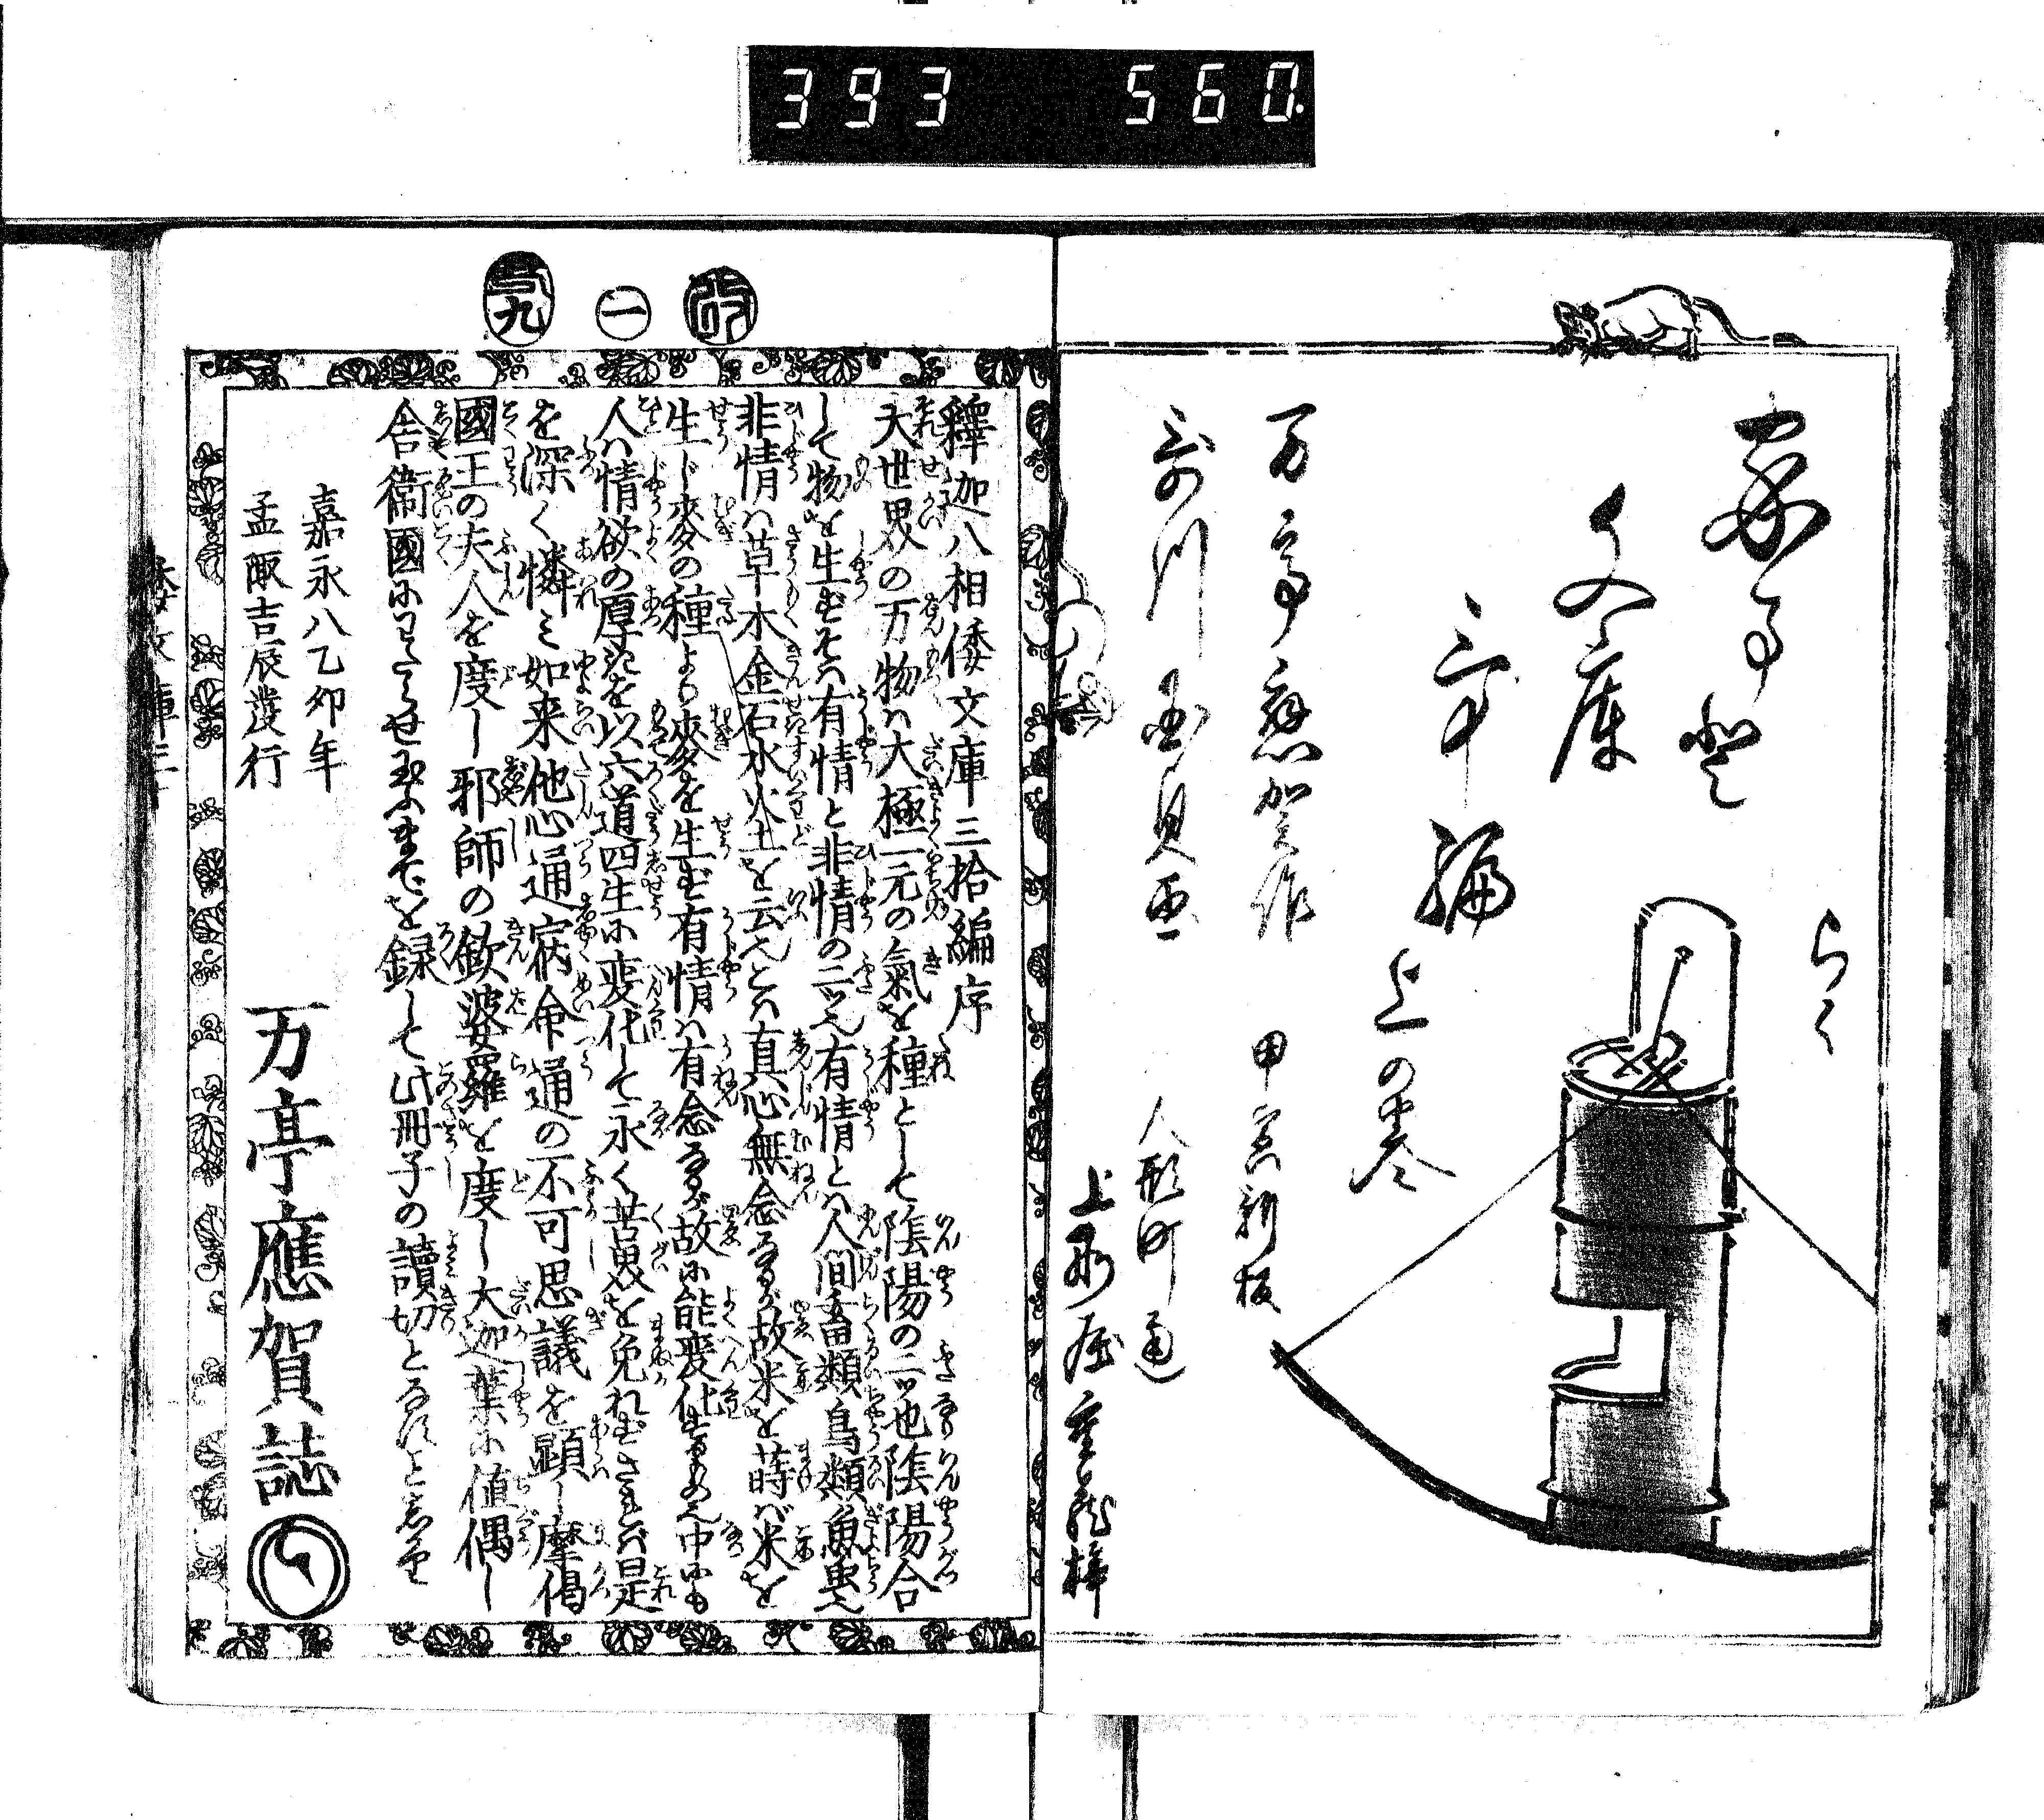 393 560.
文庫
三十編
上の巻
万亭應賀作
甲寅新板
人形町通
上州屋重藏梓
行
一
九
釋迦八相倭文庫三拾編序
夫世界の万物ハ大極一元の氣を種として陰陽の二ッ也陰陽合
して物を生ずそハ有情と非情の二ッ也有情とハ人間畜類鳥類魚虫也
非情ハ草木金石水火土を云也とハ真心無念なるが故米を蒔バ米を
生じ麥の種より麥を生ず有情ハ有念なるが故に能変化するゆゑ中にも
人ハ情欲の厚きを以六道四生に変化して永く苦界を免れずされバ是
を深く憐ミ如来他心通宿命通の不可思議を顕し摩偈
國王の夫人を度し邪師の歓婆羅を度し大迦葉に値偶し
舎衛國にわたらせ玉ふまでを録して此冊子の讀切となすことゝ
嘉永八乙卯年
孟陬吉辰發行
万亭應賀誌